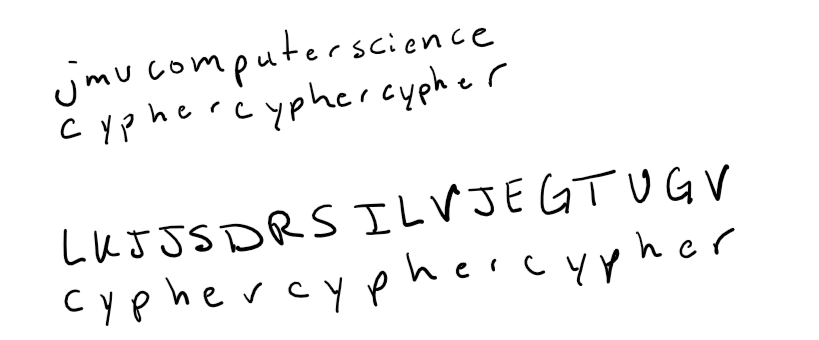 jmucomputerscience
cyphercyphercypher
LKJJSDRSILVJEGTUGV
cyphercyphercypher